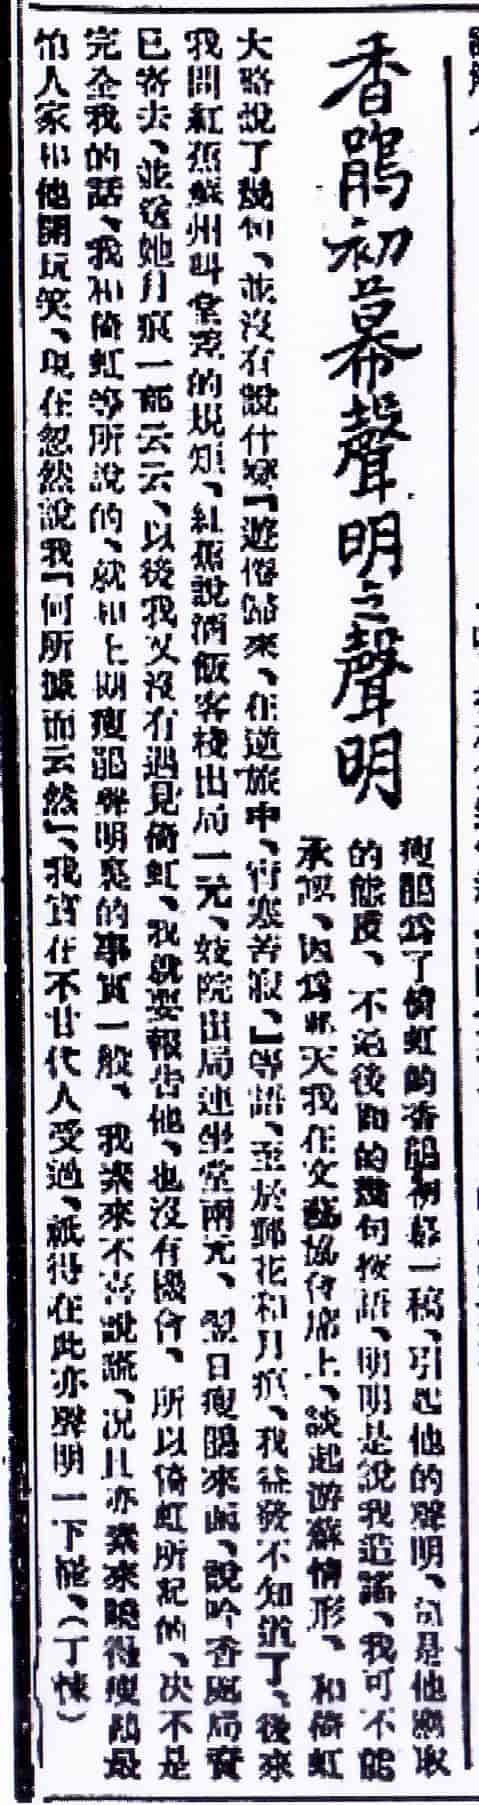 香鵑初幕聲明之聲明
瘦鵑爲了倚虹的香鵑初幕一稿、引起他的聲明、這是他應取
的態度、不過後面的幾句按語、明明是說我造謠、我可不能
承認、因爲那天我在文藝協會席上、談起游蘇情形、和倚虹
大略說了幾句、並沒有說什麽「遊倦歸來、在逆旅中、宵寒善假、」等語、至於鄧花和月痕、我益發不知道了、後來
我問紅蕉蘇州叫堂差的規矩、紅蕉說酒飯客棧出局一元、妓院出局連坐堂兩元、翌日瘦鵑來函、說吟香處局資
已寄去、並送她月痕一部云云、以後我又沒有遇見倚虹、我就要報告他、也沒有機會、所以倚虹所記的、决不是
完全我的話、我和倚虹等所說的、就和上期瘦鵑聲明裏的事實一般、我素來不喜說謊、况且亦素來曉得瘦鵑最
怕人家和他開玩笑、現在忽然說我「何所據而云然」、我實在不甘代人受過、祇得在此亦聲明一下罷、(丁悚)